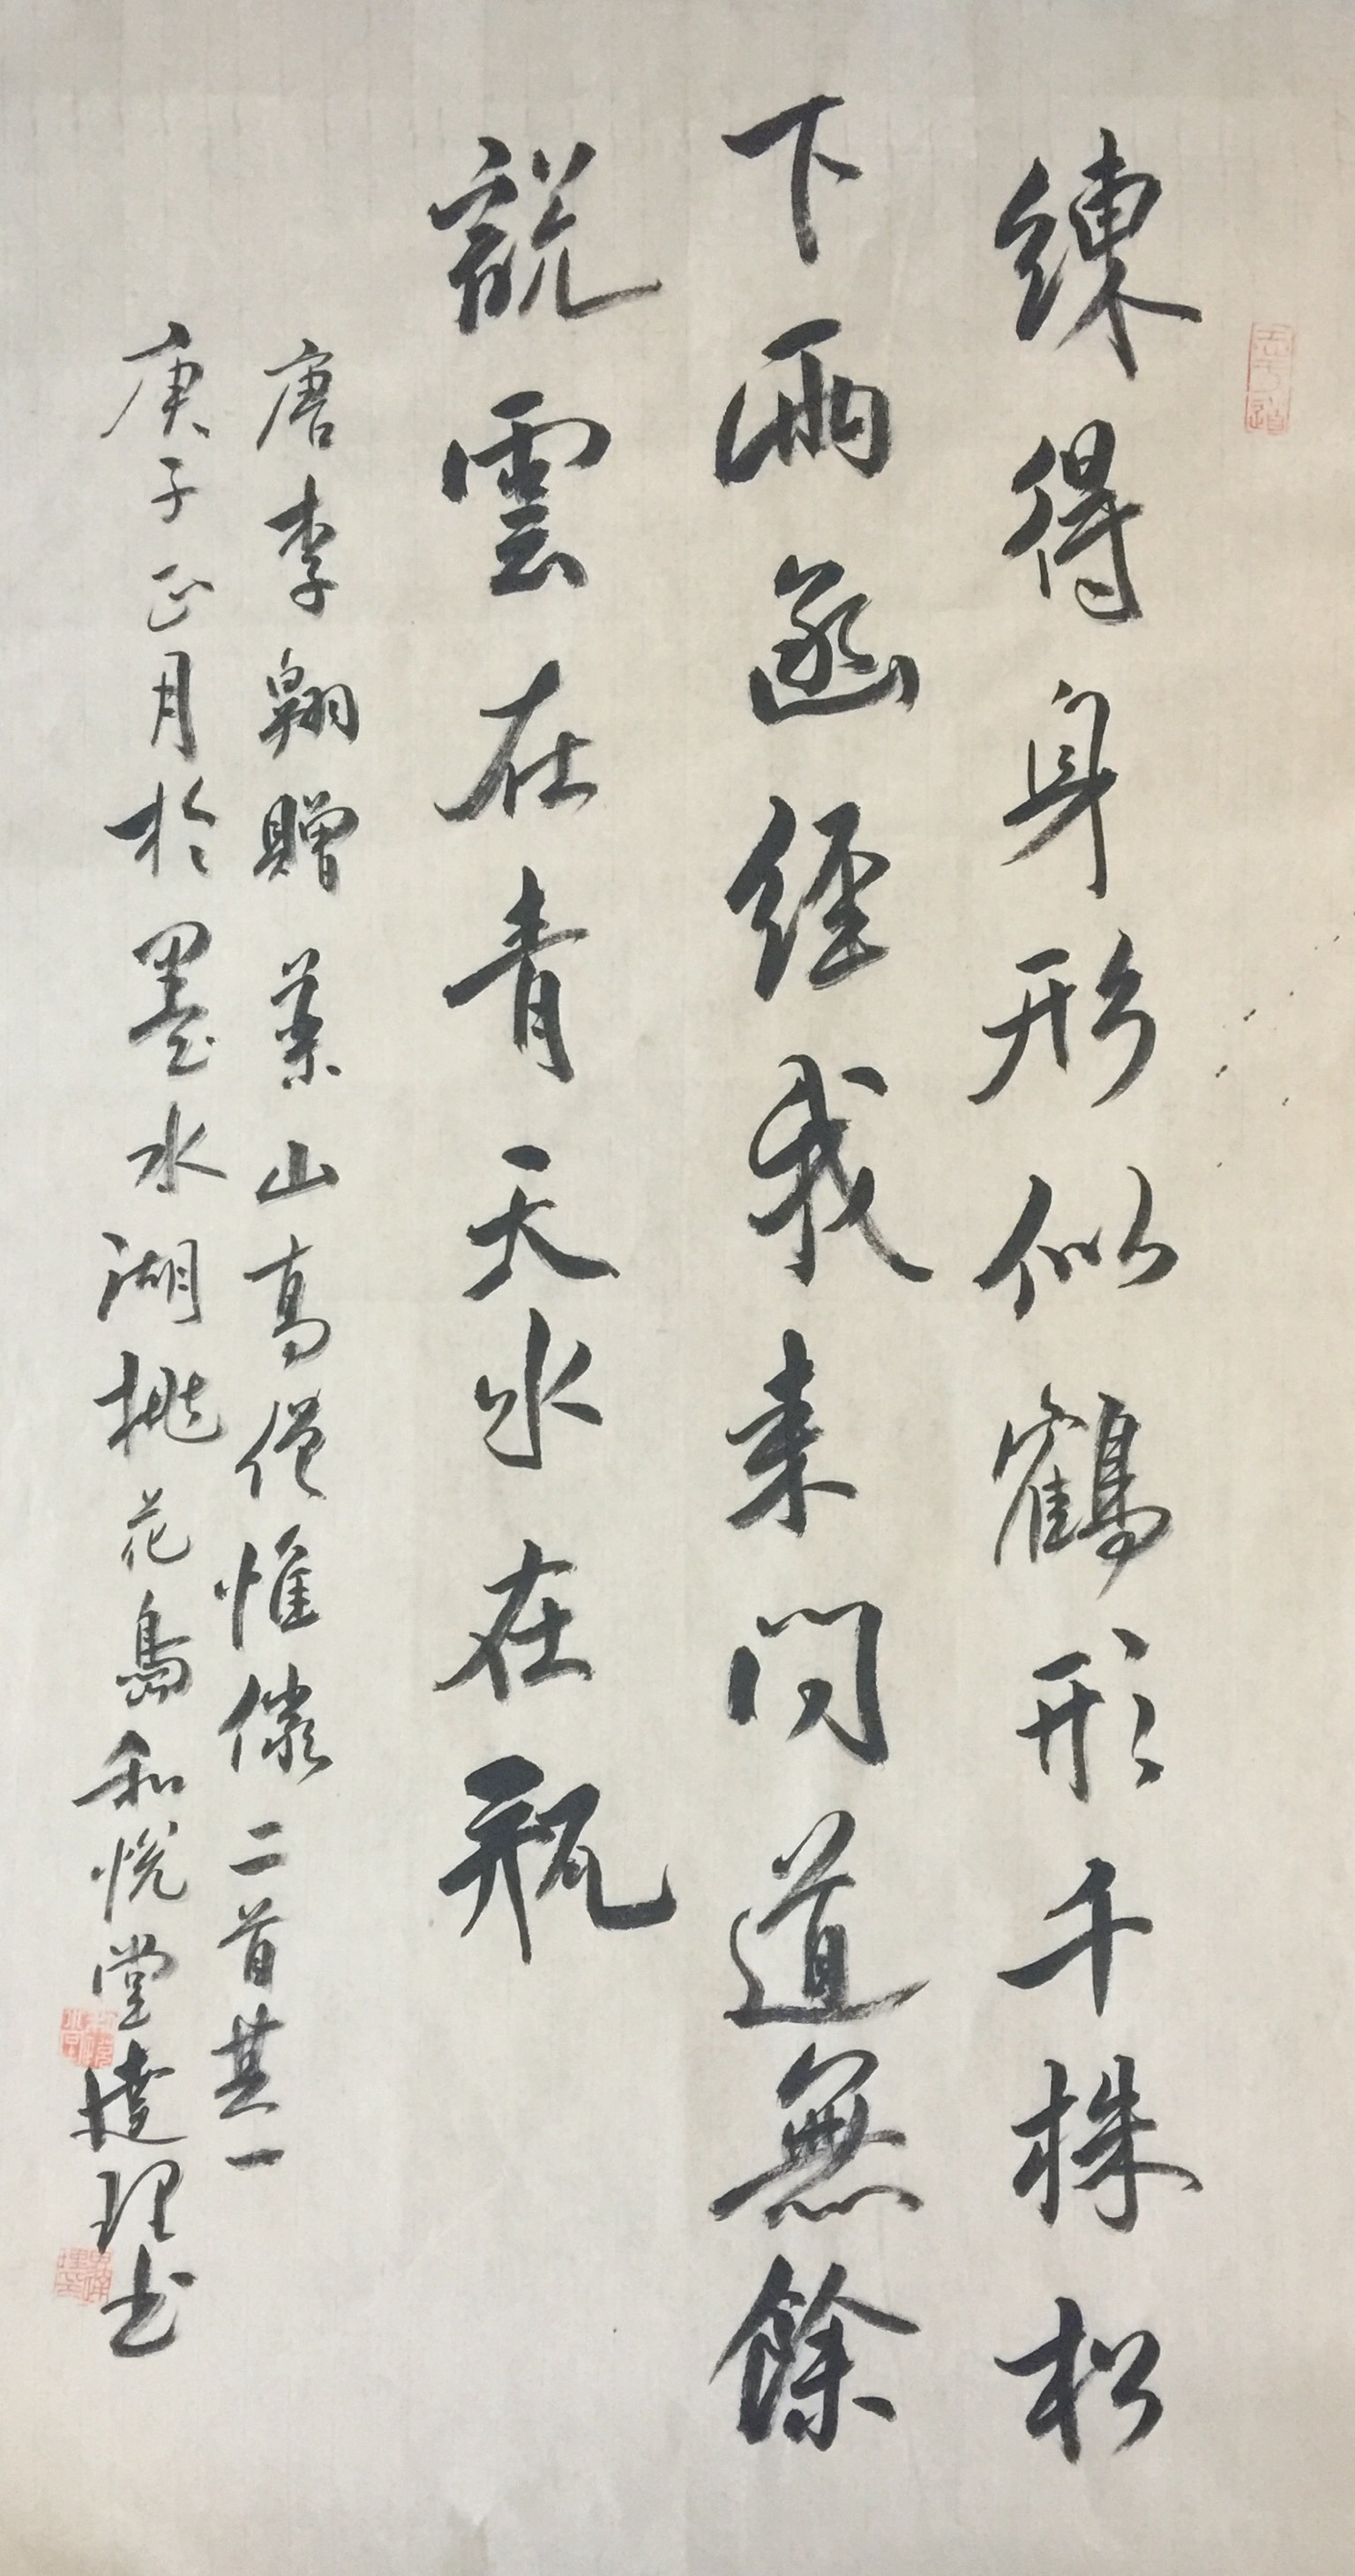 練得身形似鶴形千株松
下兩函經我来問道無餘
說雲在青天水在瓶
唐李翱贈葯山高僧惟儼二首其一
庚子正月於墨水湖桃花島和悅堂達理书